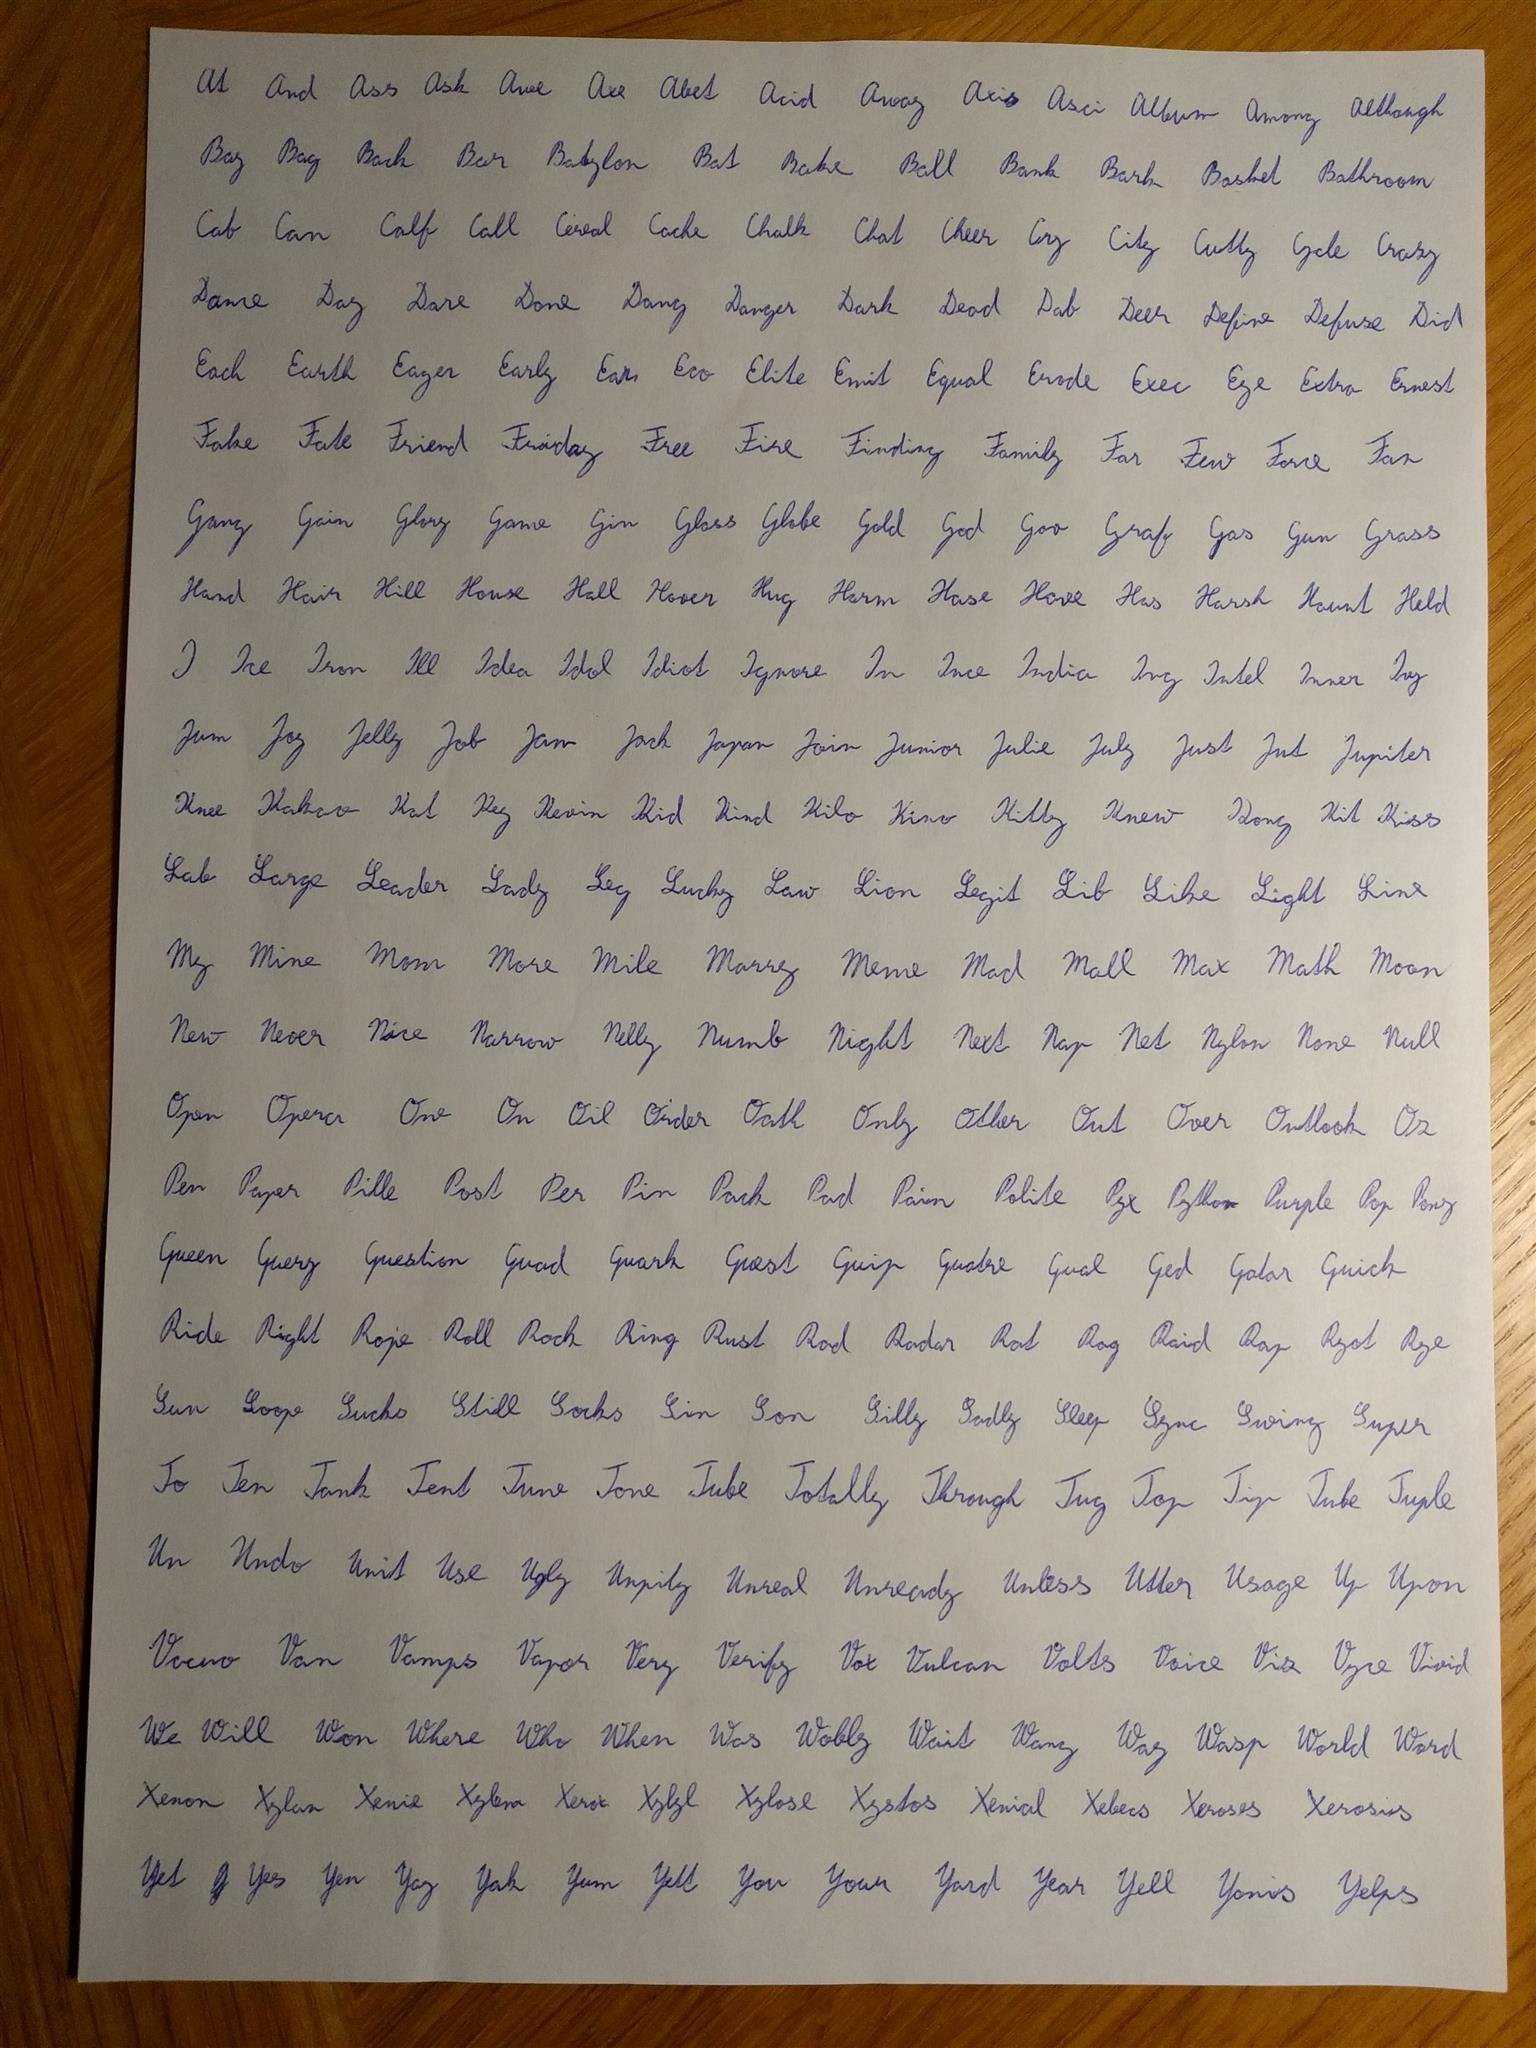 At And Ass Ask Awe Axe Abet Acid Away Axis Asci Album Among Although
Bay Bag Back Bar Babylon Bat Bake Ball Bank Bark Basket Bathroom
Cab Can Calf Call Cereal Cache Chalk Chat Cheer Cry City Cutty Cycle Crazy
Dame Day Dare Done Dang Danger Dark Dead Dab Deer Define Defuse Did
Each Earth Eager Early Ear Eco Elite Emit Equal Erode Exec Eye Extra Ernest
Fake Fate Friend Friday Free Fire Finding Family Far Few Force Fan
Gang Gain Glory Game Gin Glass Globe Gold God Goo Graf Gas Gun Grass
Hand Hair Hill House Hall Hover Hug Harm Hase Have Has Harsh Haunt Held
I Ice Iron Ill Idea Idol Idiot Ignore In Ince India Ing Intel Inner Ivy
Jum Joy Jelly Job Jam Jack Japan Join Junior Julie July Just Jut Jupiter
Knee Kakao Kat Key Kevin Kid Kind Kilo Kino Kitty Knew Kong Kit Kiss
Lab Large Leader Lady Leg Lucky Law Lion Legit Lib Like Light Line
My Mine Mom More Mile Marry Meme Mad Mall Max Math Moon
New Never Nice Narrow Nelly Numb Night Next Nap Net Nylon None Null
Open Opera One On Oil Order Oath Only Other Out Over Outlook Oz
Pen Paper Pille Post Per Pin Pack Pad Pain Polite Pyx Python Purple Pop Pony
Queen Query Question Quad Quark Quest Quip Quatre Qual Qed Qatar Quick
Ride Right Rope Roll Rock Ring Rust Rod Radar Rat Rag Raid Rap Ryot Rye
Sun Soope Sucks Still Socks Sin Son Silly Sadly Sleep Sync Swing Super
To Ten Tank Tent Tune Tone Tube Totally Through Tug Top Tip Tube Tuple
Un Undo Unit Use Ugly Unpity Unreal Unready Unless Utter Usage Up Upon
Vacuo Van Vamps Vapor Very Verify Vox Vulcan Volts Voice Vise Vyce Vivid
We Will Won Where Who When Was Wobly Wait Wang Way Wasp World Word
Xenon Xylan Xenie Xylem Xerox Xylyl Xylose Xystos Xenial Xebecs Xeroses Xerosis
Yet Yes Yen Yay Yak Yum Yett You Your Yard Year Yell Yonis Yelps